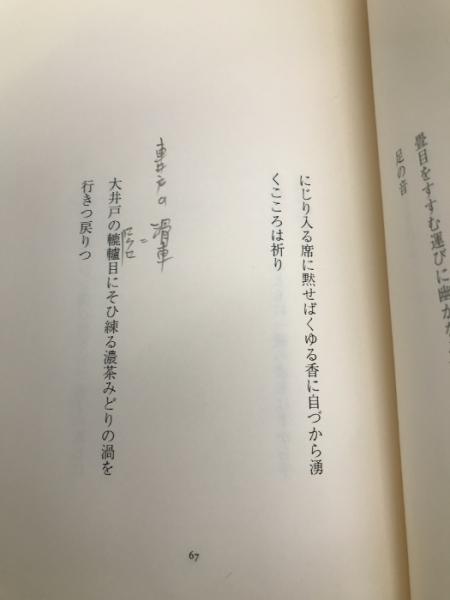 畳目をすすむ運びに幽かな
足の音
にじり入る席に黙せばくゆる香に自づから湧
くこころは祈り
車井戸の
滑車
ロクロ
大井戸の轆轤目にそひ練る濃茶みどりの渦を
行きつ戻りつ
67